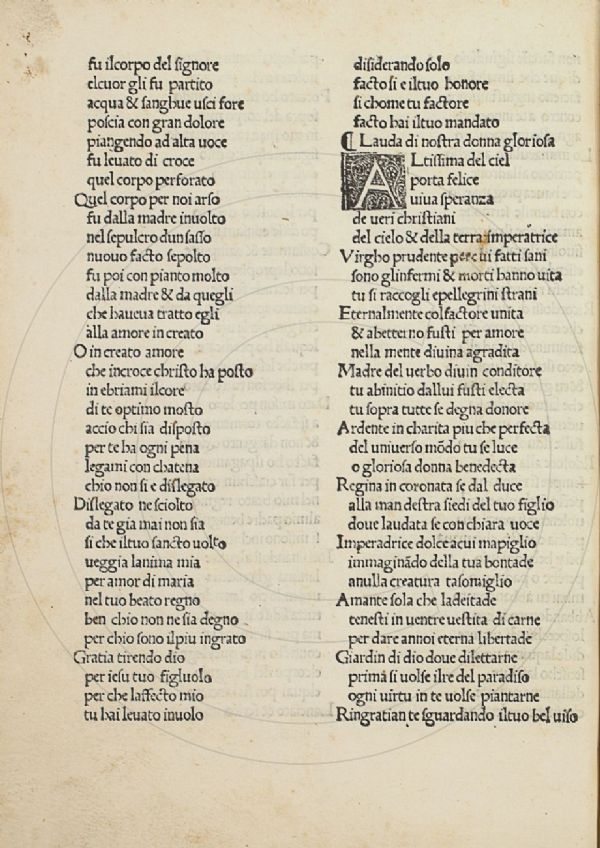 fu ilcorpo del signore
elcuor gli fu partito
acqua & sanghue usci fore
poscia con gran dolore
piangendo ad alta uoce
fu leuato di croce
quel corpo perforato
Quel corpo per noi arso
fu dalla madre inuolto
nel sepulcro dun sasso
nuouo facto sepolto
fu poi con pianto molto
dalla madre & da quegli
che haueua tratto egli
alla amore in creato
O in creato amore
che incroce christo ha posto
in ebriami ilcore
di te optimo mosto
accio chi sia disposto
per te ha ogni pena
legami con chatena
chio non si e dislegato
Dislegato ne sciolto
da te gia mai non sia
si che iltuo sancto uolto
ueggia lanima mia
per amor di maria
nel tuo beato regno
ben chio non ne sia degno
per chio sono ilpiu ingrato
Gratia tirendo dio
per iesu tuo figluolo
per che laffecto mio
tu hai leuato inuolo
disiderando solo
facto si e iltuo honore
si chome tu factore
facto hai iltuo mandato
¶ Lauda di nostra donna gloriosa
Altissima del ciel
porta felice
uiua speranza
de ueri christiani
del cielo & della terra imperatrice
Virgho prudente per cui fatti sani
sono glinfermi & morti hanno uita
tu si raccogli epellegrini strani
Eternalmente colfactore unita
& abetterno fusti per amore
nella mente diuina agradita
Madre del uerbo diuin conditore
tu abinitio dallui fusti electa
tu sopra tutte se degna donore
Ardente in charita piu che perfecta
del uniuerso mōdo tu se luce
o gloriosa donna benedecta
Regina in coronata se dal duce
alla man destra siedi del tuo figlio
doue laudata se con chiara uoce
Imperadrice dolce acui mapiglio
immaginādo della tua bontade
anulla creatura tasomiglio
Amante sola che ladeitade
tenesti in uentre uestita di carne
per dare annoi eterna libertade
Giardin di dio doue dilettarne
prima si uolse ilre del paradiso
ogni uirtu in te uolse piantarne
Ringratian te sguardando iltuo bel uiso